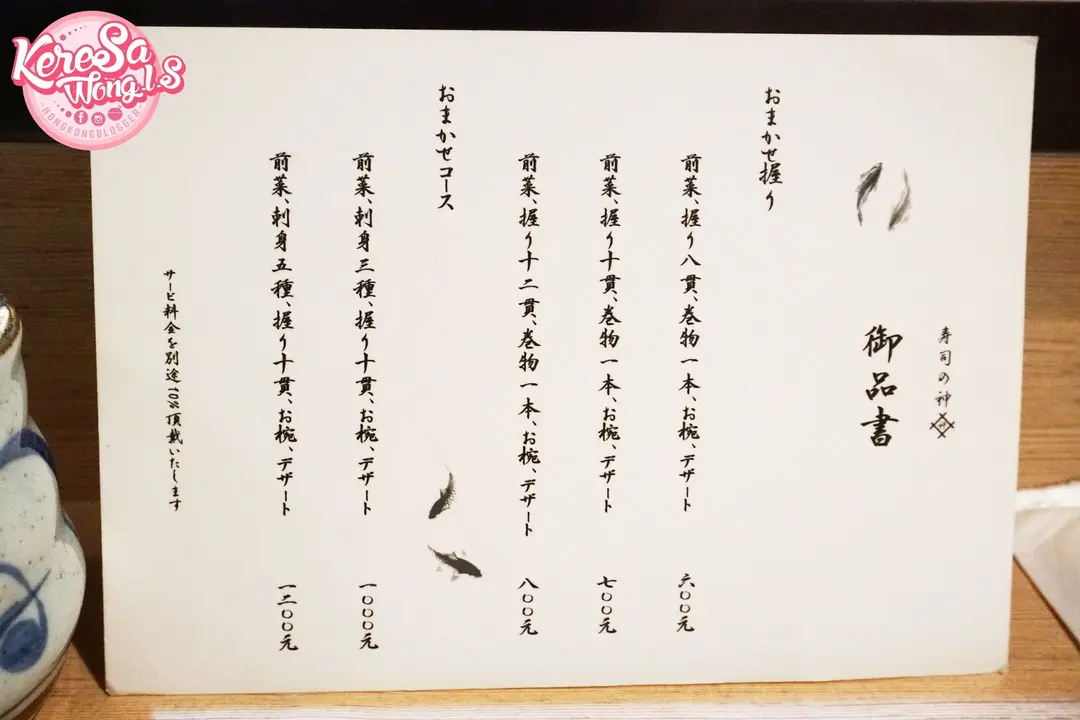 寿司の神
御品書
おまかせ握り
前菜、握り八貫、巻物一本、お椀、デザート 六〇〇元
前菜、握り十貫、巻物一本、お椀、デザート 七〇〇元
前菜、握り十二貫、巻物一本、お椀、デザート 八〇〇元
おまかせコース
前菜、刺身三種、握り十貫、お椀、デザート 一〇〇〇元
前菜、刺身五種、握り十貫、お椀、デザート 一二〇〇元
サービ料金を別途10%頂戴いたします
KereSa
Wong.l.S
HONGKONGBLOGGER